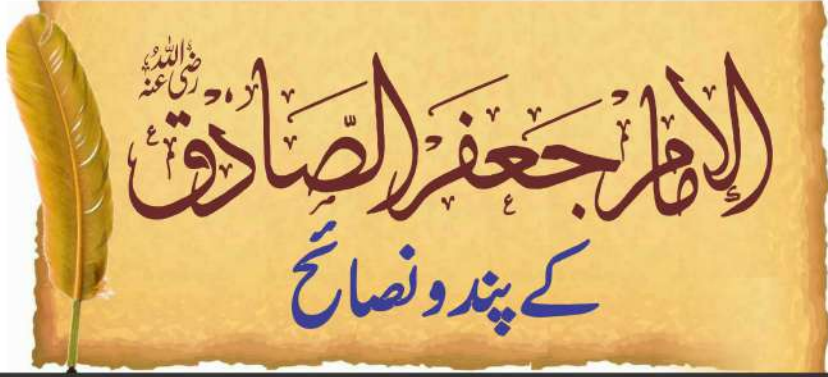 الإمام جعفر الصادق رضی اللہ عنہ
کے پند و نصائح